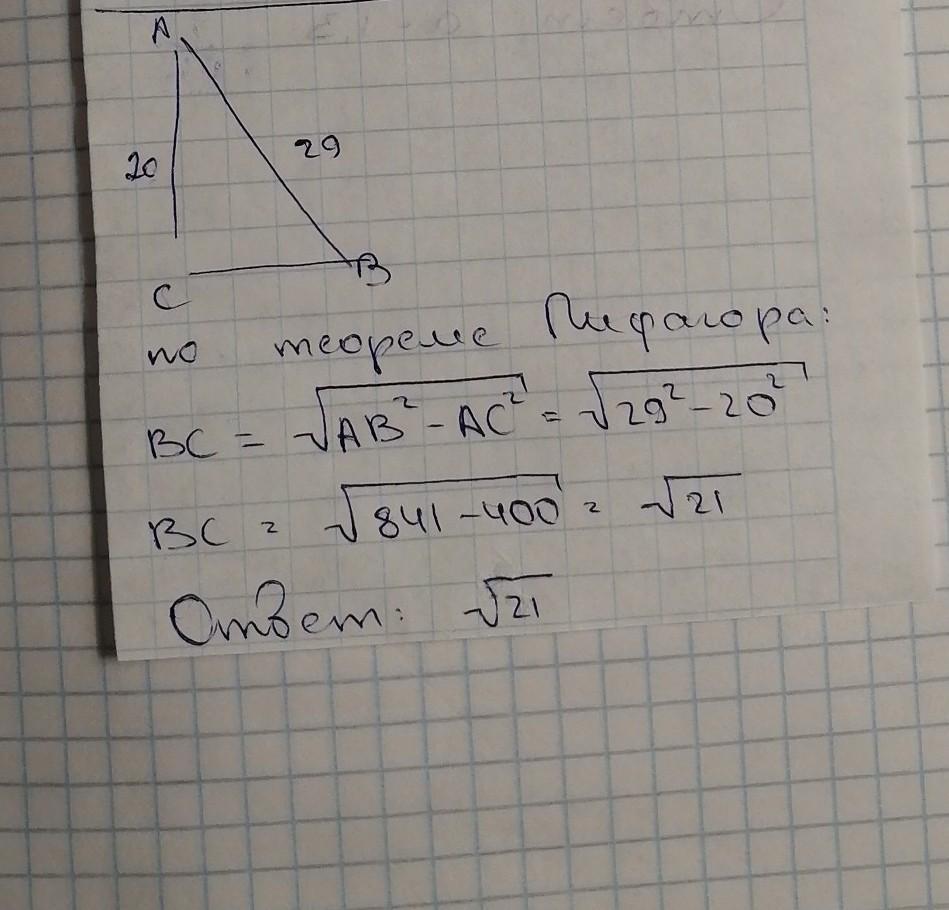 A
20
29
C
B
по теореме Пифагора:
BC = √AB² - AC² = √29² - 20²
BC = √841 - 400 = √21
Ответ: √21